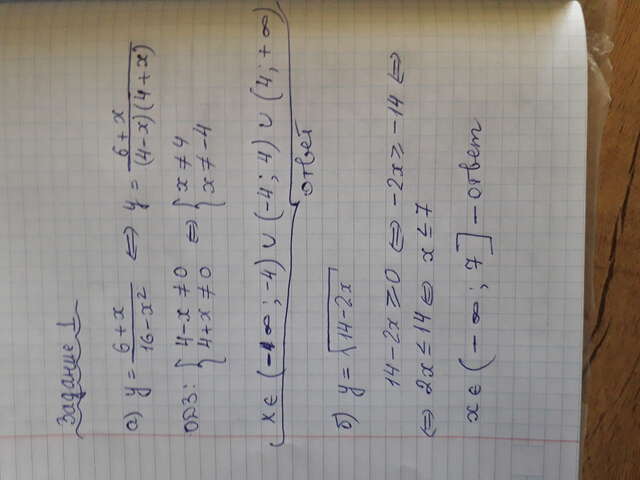 Задание 1
а) y = 6+x / 16-x² ⇔ y = 6+x / (4-x)(4+x)
ОДЗ: { 4-x ≠ 0 ⇔ { x ≠ 4
4+x ≠ 0 x ≠ -4
x ∈ (-∞; -4) ∪ (-4; 4) ∪ (4; +∞)
ответ
б) y = √14-2x
14-2x ≥ 0 ⇔ -2x ≥ -14 ⇔
⇔ 2x ≤ 14 ⇔ x ≤ 7
x ∈ (-∞; 7] - ответ